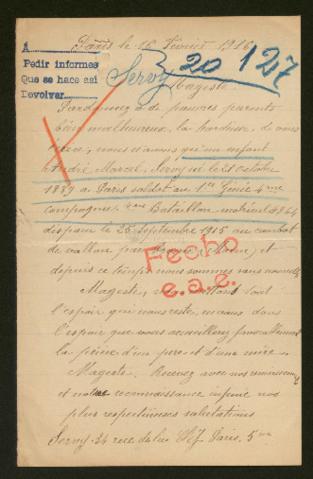 Paris le 16 Février 1916
1
Pedir informes
Que se hace así
Devolver
Servy
20127
Majesté
Pardonnez a de pauvres parents
bien malheureux, la hardiesse de vous
nous n'avons qu'un enfant
André Marcel Servy né le 21 octobre
1889 a Paris soldat au 1er Génie 4me
compagnie Bataillon matricule
disparu le 25 septembre 1915 au combat
de vallon et
depuis ce temps nous sommes sans nouvelle
Fecho
e.a.e.
Majesté, tout
l'espoir qui nous reste, ce dans
l'espoir que vous accueillerez favorablement
la prière d'un père et d'une mère
Majesté. Recevez avec nos remerciements
et notre reconnaissance infinie nos
plus respectueuses salutations
Servy 34 rue Paris. 5me